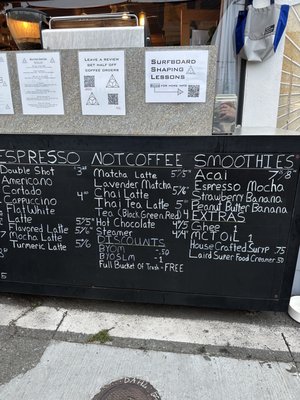 LEAVE A REVIEW
GET HALF OFF
COFFEE ORDERS
SURFBOARD
SHAPING
LESSONS
FOR MORE INFO
ESPRESSO
Double Shot 3⁵⁰
Americano
Cortado 4⁰⁰
Cappuccino
Flat White
Latte 5/5⁵
Flavored Latte 5⁷⁵
Mocha Latte 5/6
Turmeric Latte
NOTCOFFEE
Matcha Latte 5/5⁵
Lavender Matcha
Chai Latte 5/6
Thai Tea Latte 5
Tea (Black Green Red) 4
Hot Chocolate 4/5
Steamer 4/4
DISCOUNTS
BYOM -.50
BYOSLM -1
Full Bucket of Trash = FREE
SMOOTHIES
Acai 7/8
Espresso Mocha
Strawberry Banana
Peanut Butter Banana
EXTRAS
Ghee
MCT OIL 1
House Crafted Suryp .75
Laird Super Food Creamer .50